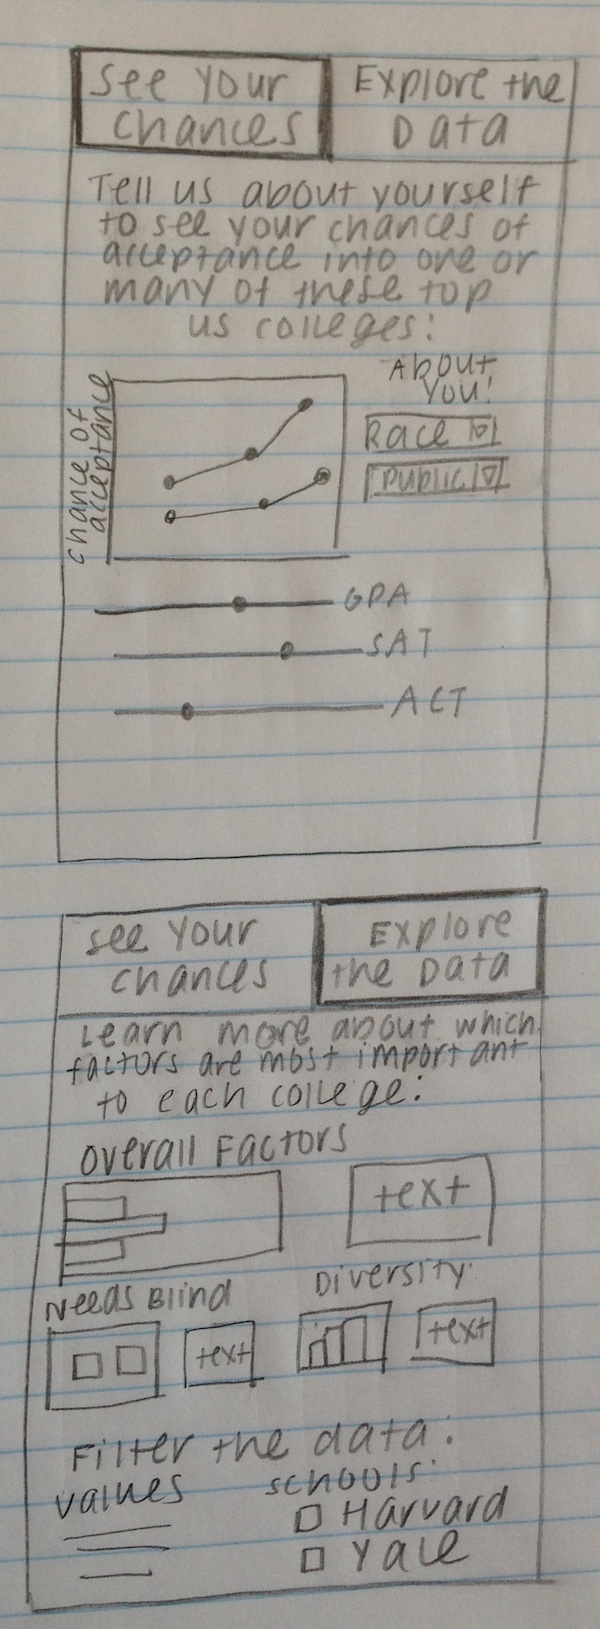 See Your
Chances
Explore the
Data
Tell us about yourself
to see your chances of
acceptance into one or
many of these top
us colleges:
Chance of
acceptance
About
You!
Race
Public
GPA
SAT
ACT
See Your
Chances
Explore
the Data
Learn more about which
factors are most important
to each college:
Overall Factors
text
Needs Blind
Diversity:
text
text
Filter the data:
values
schools:
Harvard
Yale